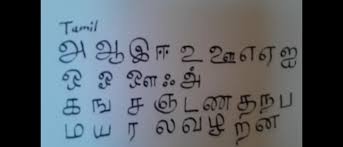 Tamil
அ ஆ இ ஈ உ ஊ எ ஏ ஐ
ஒ ஓ ஔ ஃ அ்
க ங ச ஞ ட ண த ந ப
ம ய ர ல வ ழ ற ன